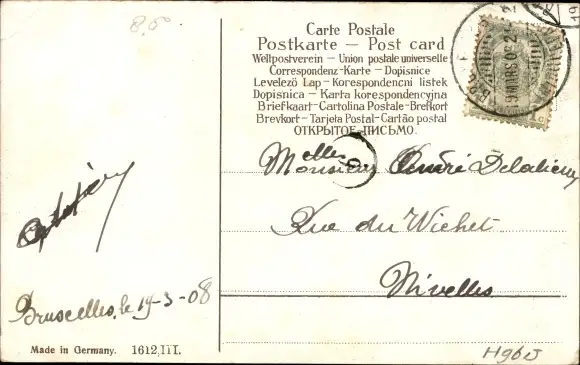 8,50
Carte Postale
Postkarte — Post card
Weltpostverein — Union postale universelle
Correspondenz-Karte — Dopisnice
Levelező Lap — Korespondencni listek
Dopisnica — Karta korespondencyjna
Briefkaart — Cartolina Postale — Brefkort
Brevkort — Tarjeta Postal — Cartão postal
ОТКРЫТОЕ ПИСЬМО.
elle
Monsieur André
Rue du Wichet
Nivelles
Bruxelles, le 19-3-08
Made in Germany. 1612, III.